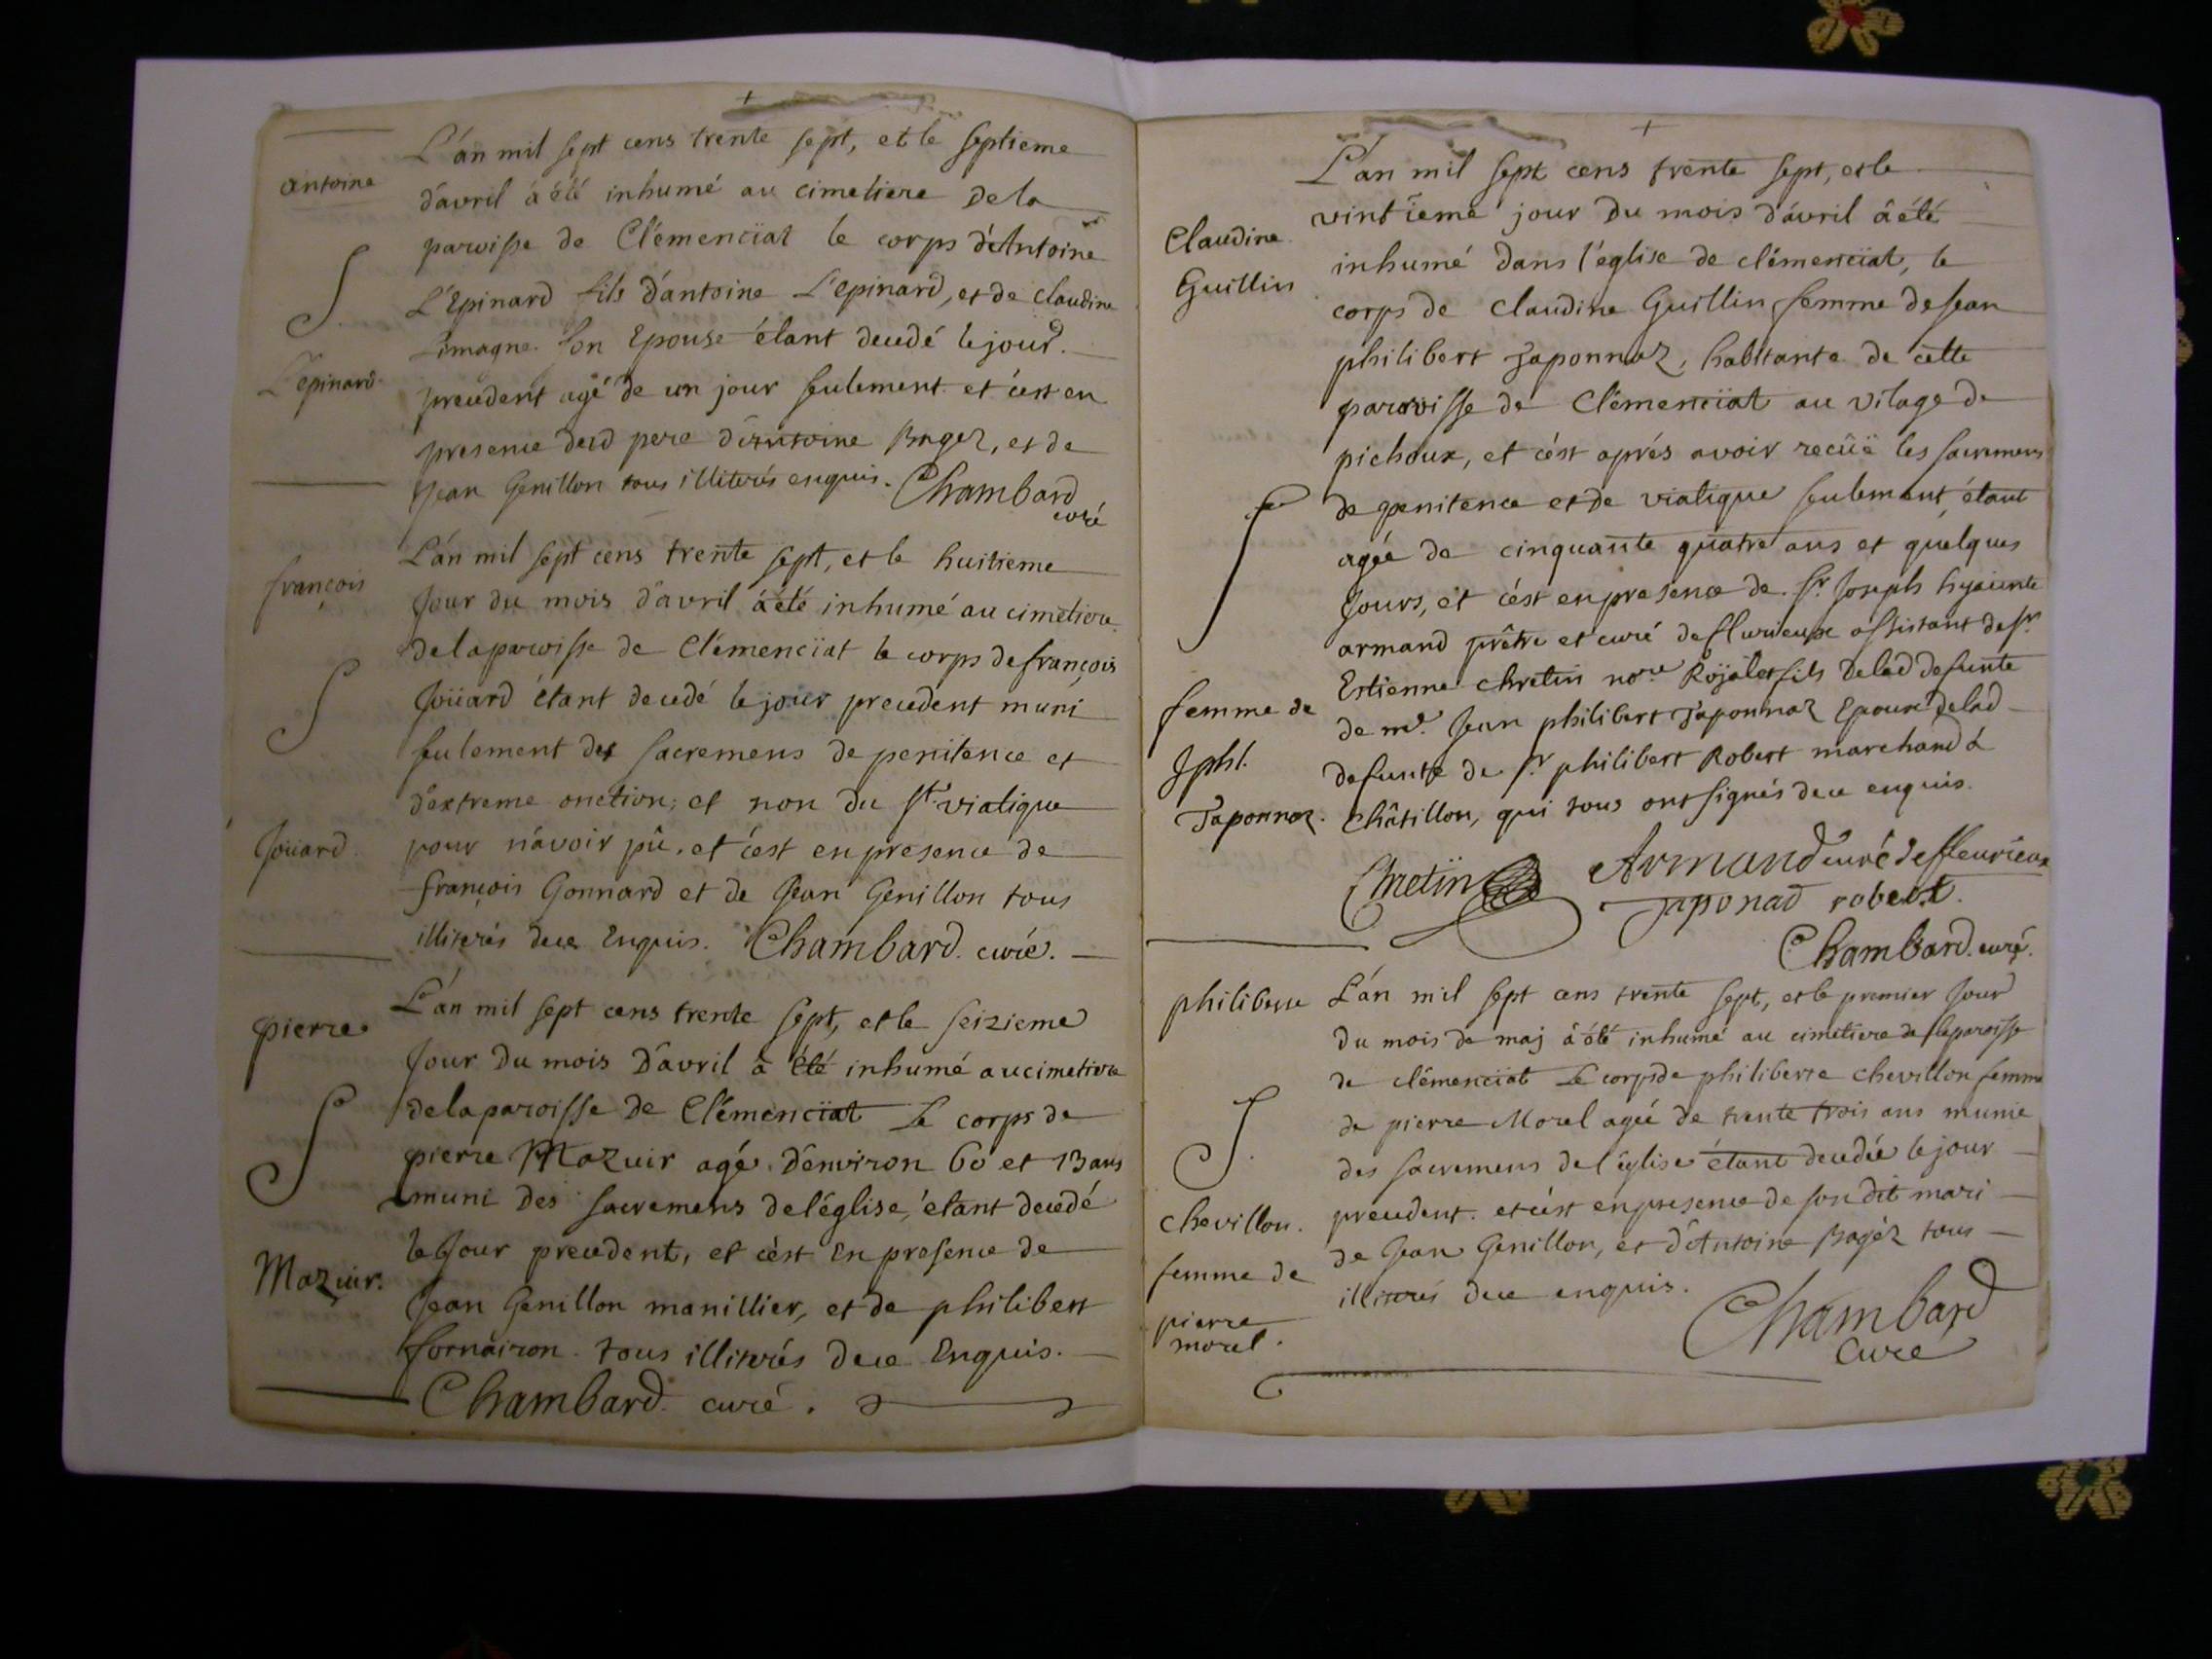 +
antoine
S
L'epinard
L'án mil sept cens trente sept, et le septieme
d'avril á été inhumé au cimetiere de la
paroisse de Clémencïat le corps d'Antoine
L'Epinard fils d'antoine L'epinard, et de claudine
Limagne son Epouse étant decedé le jour
precedent agé de un jour seulement et c'est en
presence dud pere d'antoine Bagez, et de
Jean Genillon tous illiterés enquis. Chambard
curé
françois
S
Joüard
L'án mil sept cens trente sept, et le huitieme
Jour du mois d'avril á été inhumé au cimetiere
de la paroisse de Clémencïat le corps de françois
Joüard étant decedé le jour precedent muni
seulement des sacremens de penitence et
d'extreme onction; et non du st viatique
pour n'ávoir pû, et c'est en presence de
françois Gonnard et de Jean Genillon tous
illiterés de ce Enquis. Chambard curé.
pierre
S
Mazuir.
L'án mil sept cens trente sept, et le seizieme
Jour du mois d'avril à été inhumé au cimetiere
de la paroisse de Clémencïat Le corps de
pierre Mazuir agé d'environ 60 et 13 ans
muni des sacremens de l'église, étant decedé
le Jour precedent, et c'est En presence de
Jean Genillon manillier, et de philibert
fornairon tous illiterés de ce Enquis.
Chambard curé.
+
Claudine
Guillin
S
femme de
J phl.
Taponnaz.
L'án mil sept cens trente sept, et le
vintïeme jour du mois d'ávril á été
inhumé dans l'église de clémencïat, le
corps de Claudine Guillin femme de Jean
philibert Taponnaz, habitante de cette
paroisse de Clémencïat au vilage de
pichoux, et c'est aprés avoir recüë les sacremens
de penitence et de viatique seulement, étant
agée de cinquante quatre ans et quelques
Jours, et c'est en presence de sr. Joseph hyacinte
armand prêtre et curé de flurieux assistant de sr
Estienne chretin nore Roÿal et fils de lad defunte
de me. Jean philibert Taponnaz Epoux de lad
defunte de sr philibert Robert marchand á
Châtillon, qui tous ont signés de ce enquis.
Chretïn Armand curé de ffleurieux
Taponad robert.
Chambard. curé.
philiberte
S.
chevillon.
femme de
pierre
morel.
L'án mil sept cens trente sept, et le premier Jour
du mois de maj á été inhumé au cimetiere de la paroisse
de clémencïat Le corps de philiberte chevillon femme
de pierre Morel agée de trente trois ans munie
des sacremens de l'église étant decedée le jour
precedent. et c'est en presence de son dit mari
de Jean Genillon, et d'Antoine Bagéz tous
illiterés de ce enquis.
Chambard
Curé